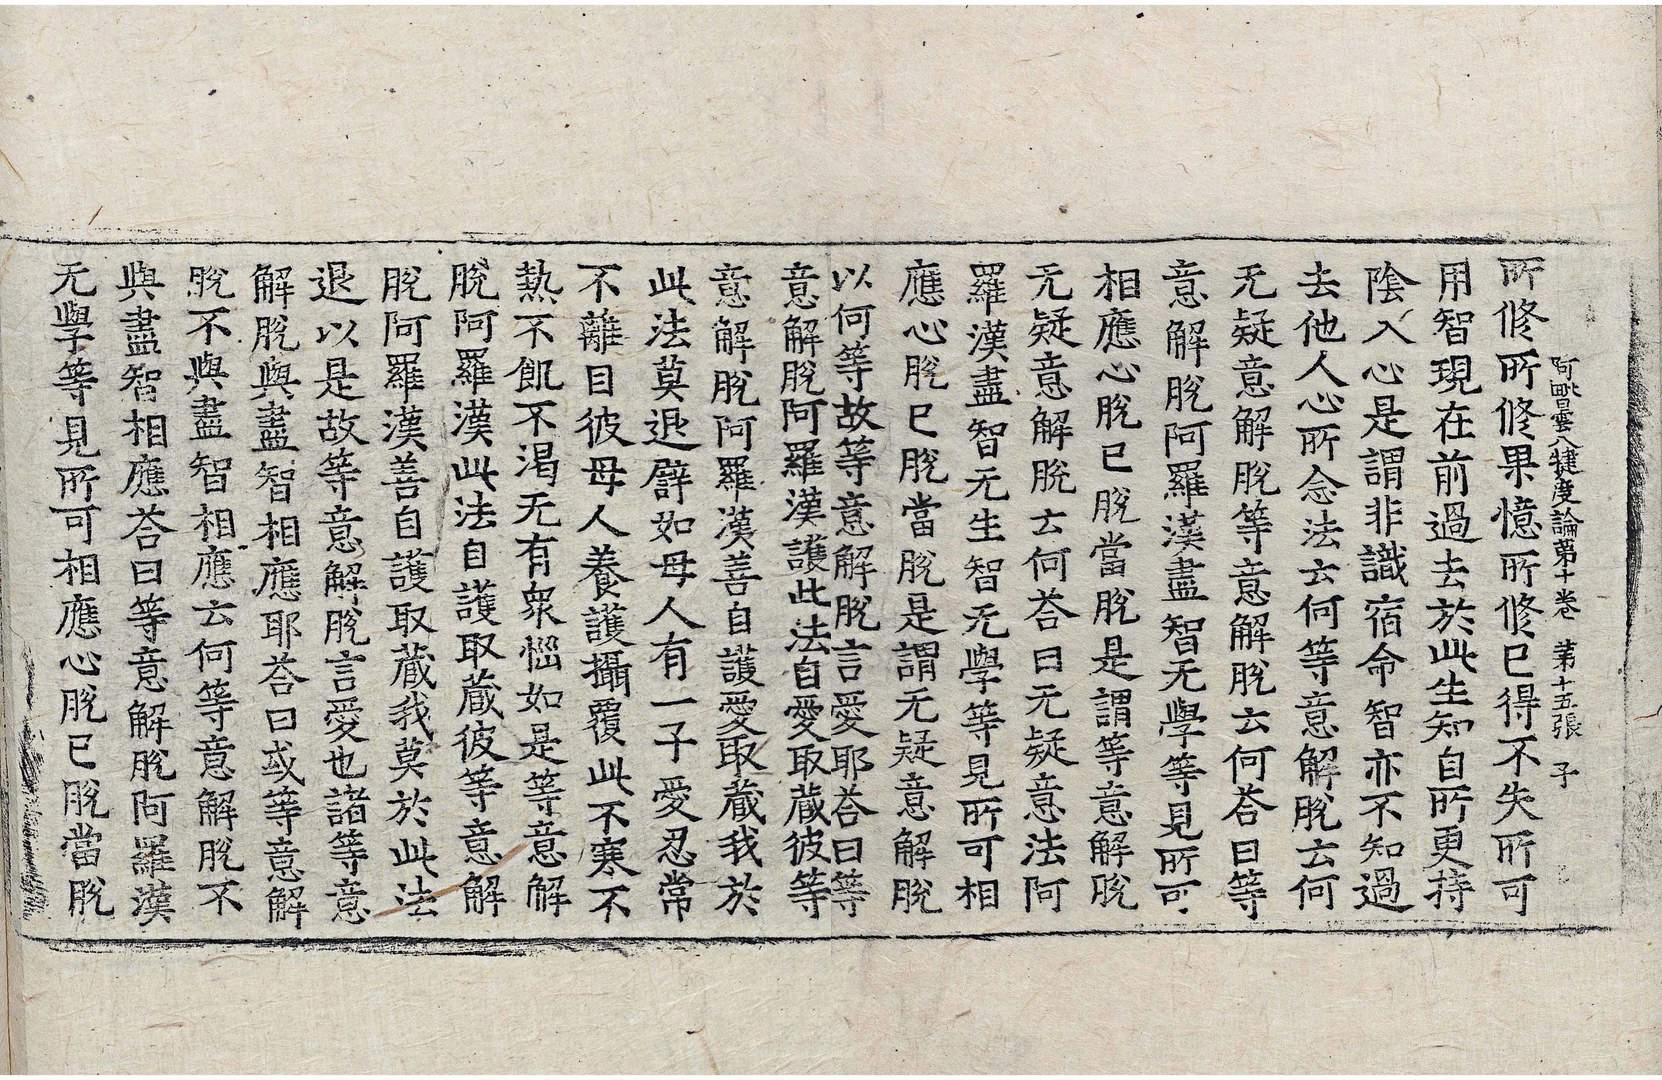 阿毗曇八犍度論第十卷　第十五張　子
所修所修果憶所修已得不失所可
用智現在前過去於此生知自所更持
陰入心是謂非識宿命智亦不知過
去他人心所念法云何等意解脫云何
无疑意解脫等意解脫云何荅曰等
意解脫阿羅漢盡智无學等見所可
相應心脫已脫當脫是謂等意解脫
无疑意解脫云何荅曰无疑意法阿
羅漢盡智无生智无學等見所可相
應心脫已脫當脫是謂无疑意解脫
以何等故等意解脫言愛耶荅曰等
意解脫阿羅漢護此法自愛取藏彼等
意解脫阿羅漢善自護愛取藏我於
此法莫退譬如母人有一子愛忍常
不離目彼母人養護攝覆此不寒不
熱不飢不渴无有衆惱如是等意解
脫阿羅漢此法自護取藏彼等意解
脫阿羅漢善自護取藏我莫於此法
退以是故等意解脫言愛也諸等意
解脫與盡智相應耶荅曰或等意解
脫不與盡智相應云何等意解脫不
與盡智相應荅曰等意解脫阿羅漢
无學等見所可相應心脫已脫當脫